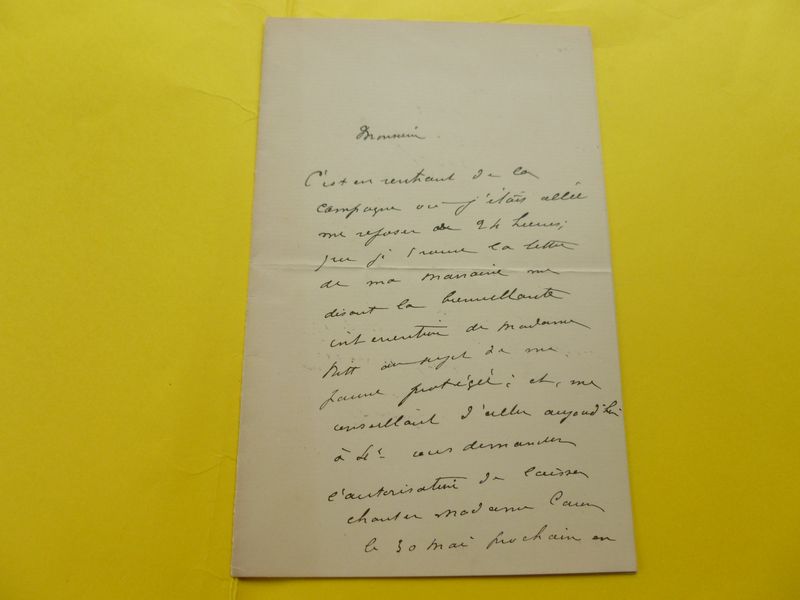 Monsieur
C'est en rentrant de la
campagne où j'étais allée
me reposer de 24 heures,
que je trouve la lettre
de ma marraine me
disant la bienveillante
intervention de Madame
Ritt au sujet de me
jeune protégée; et, me
conseillant d'aller aujourd'hui
à 4h vous demander
l'autorisation de laisser
chanter Madame Caron
le 30 Mai prochain en